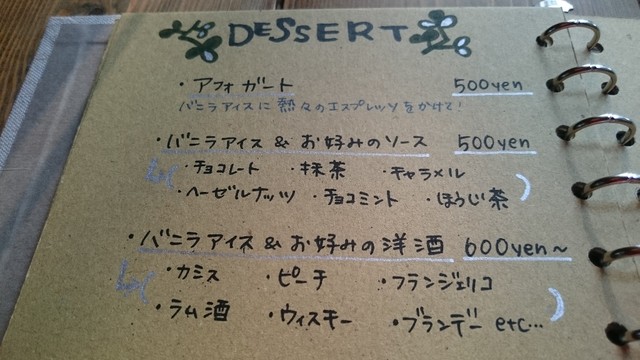 DESSERT
・アフォガート 500yen
バニラアイスに熱々のエスプレッソをかけて!
・バニラアイス & お好みのソース 500yen
・チョコレート ・抹茶 ・キャラメル
・ヘーゼルナッツ ・チョコミント ・ほうじ茶
・バニラアイス & お好みの洋酒 600yen~
・カミス ・ピーチ ・フランジェリコ
・ラム酒 ・ウィスキー ・ブランデー etc...